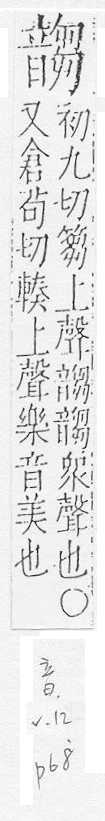 䪮
初九切篘上聲䪮䪮眾聲也〇
又倉茍切輳上聲樂音美也
音
v.12
p68